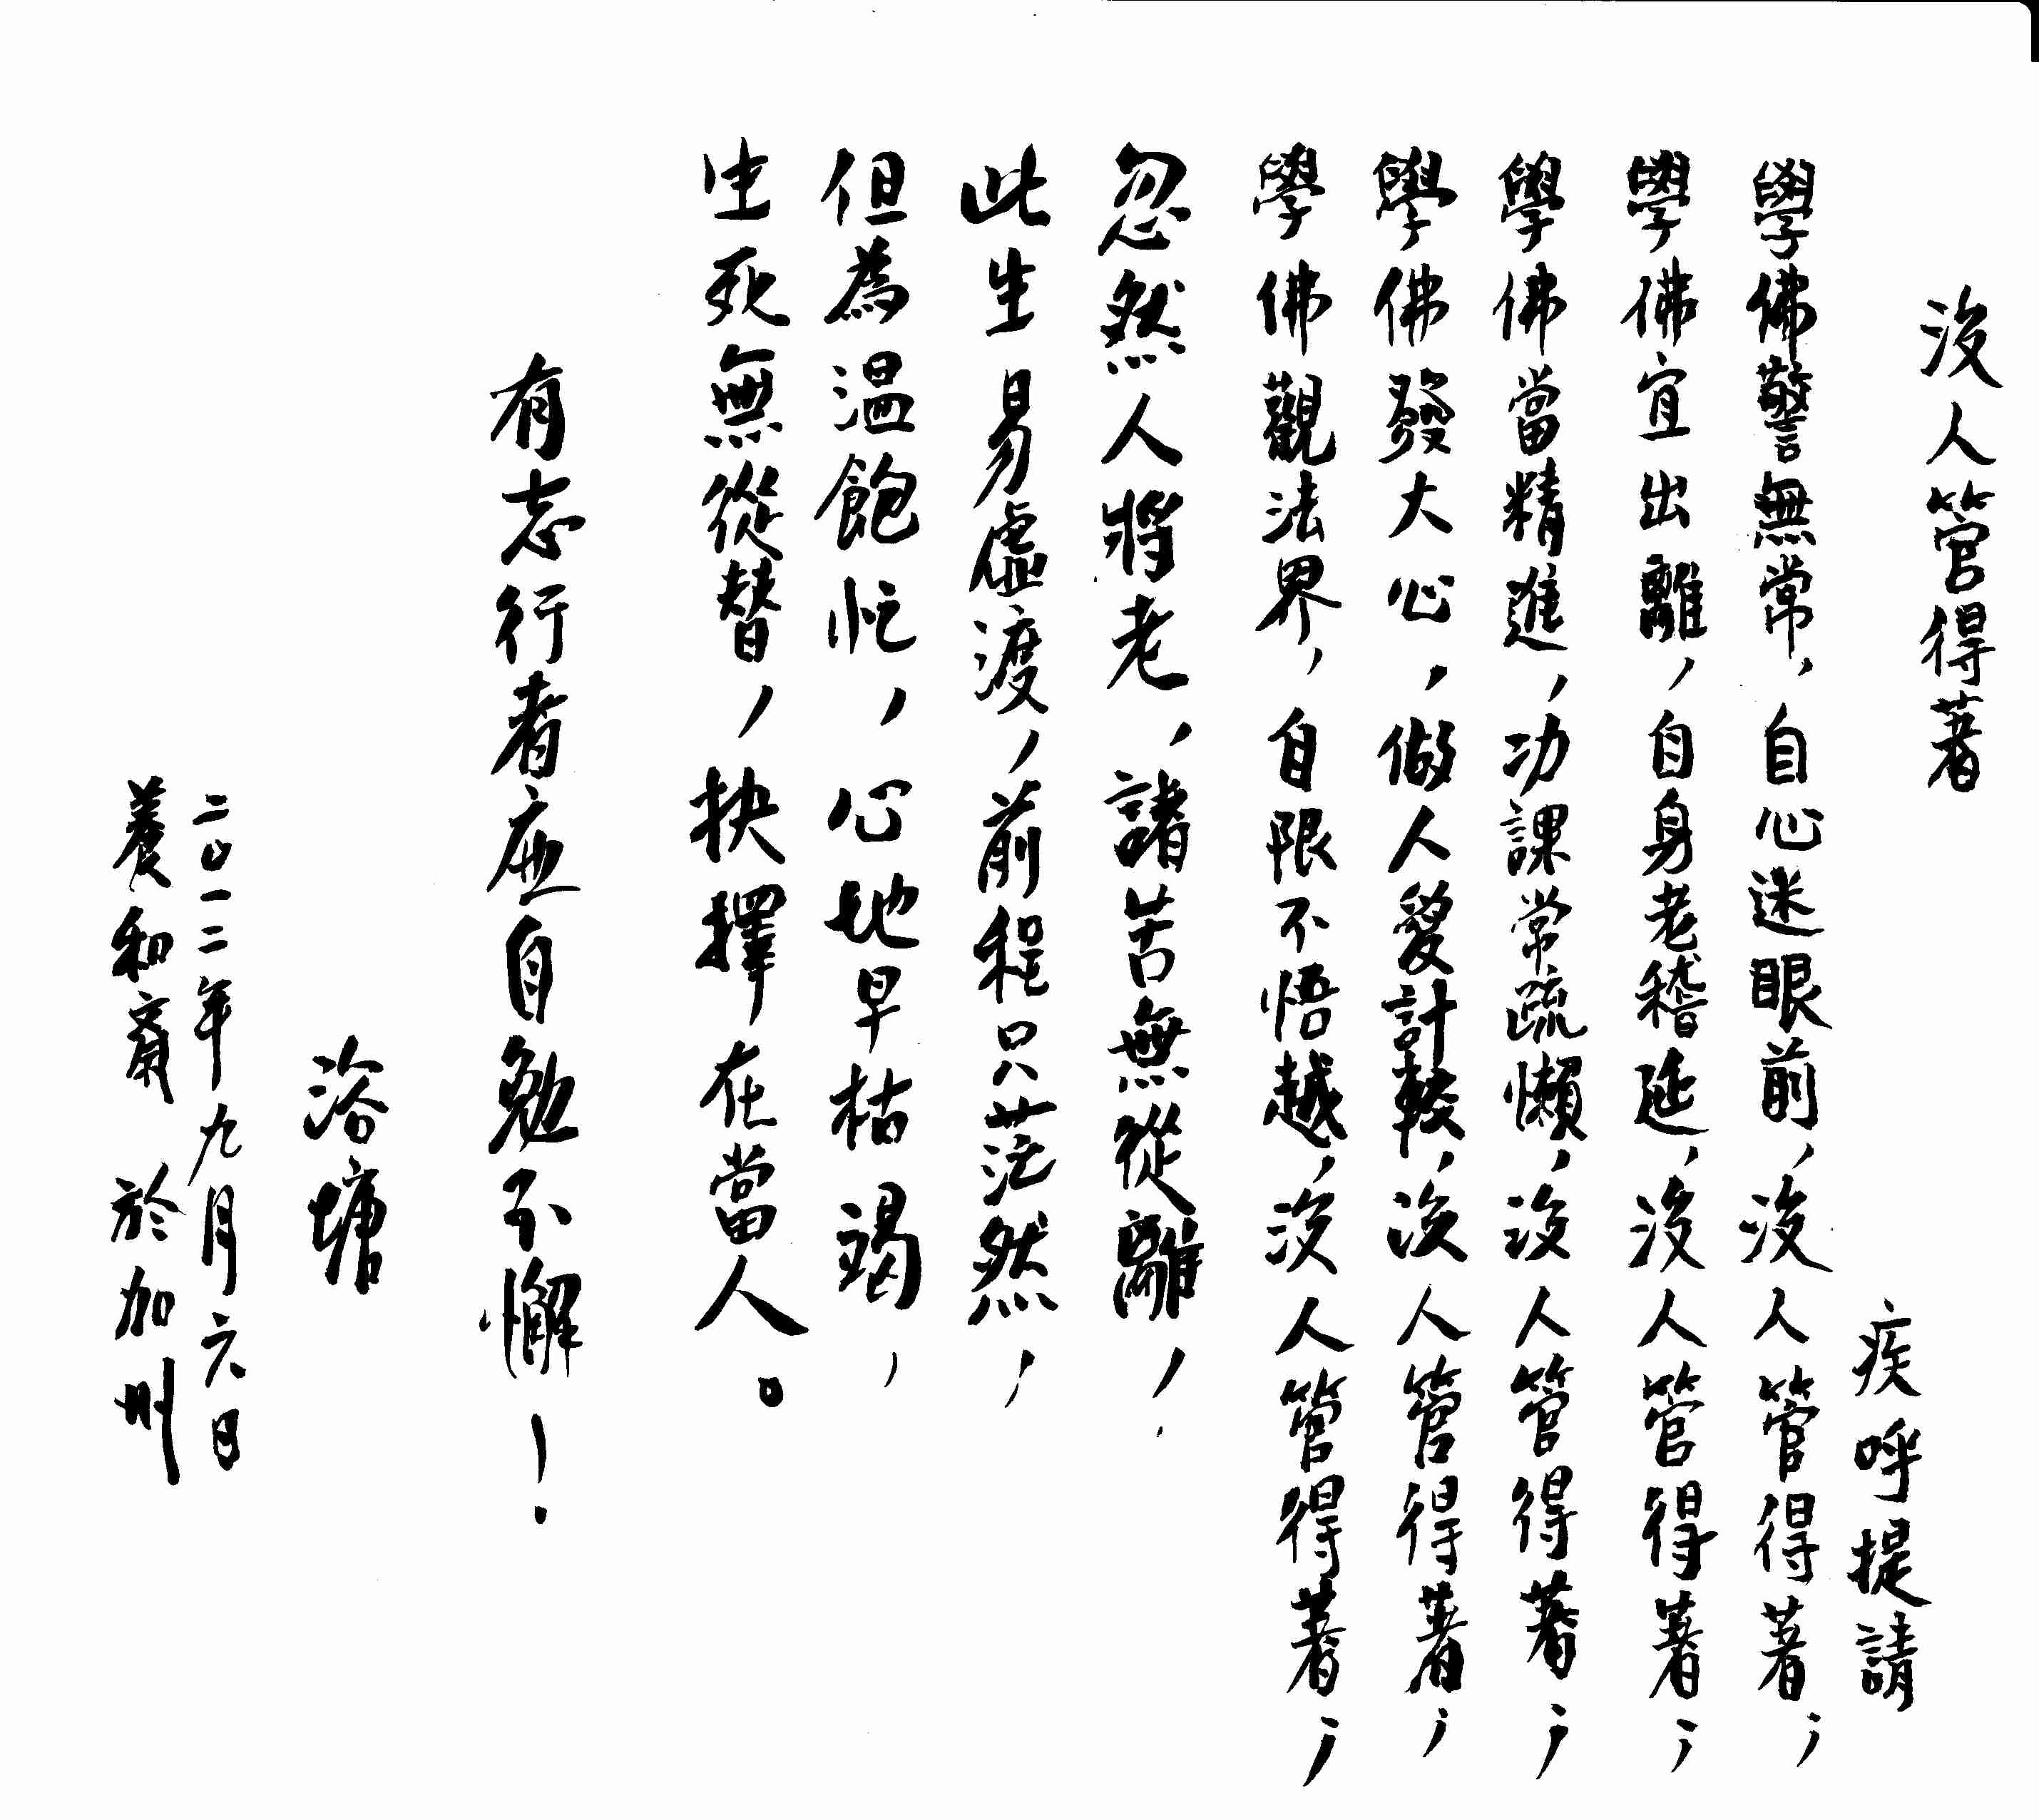 沒人管得著
疾呼提請
學佛警無常，自心迷眼前，沒人管得著；
學佛宜出離，自身老稽延，沒人管得著；
學佛當精進，功課常疏懶，沒人管得著；
學佛發大心，做人愛計較，沒人管得著；
學佛觀法界，自限不悟越，沒人管得著；
忽然人將老，諸苦無從離！
此生易虛渡，前程只茫然，
但為溫飽忙，心地早枯竭，
生死無從替，抉擇在當人。
有志行者應自勉不懈！
浴塘
二〇一二年九月六日
養和齋 於加州